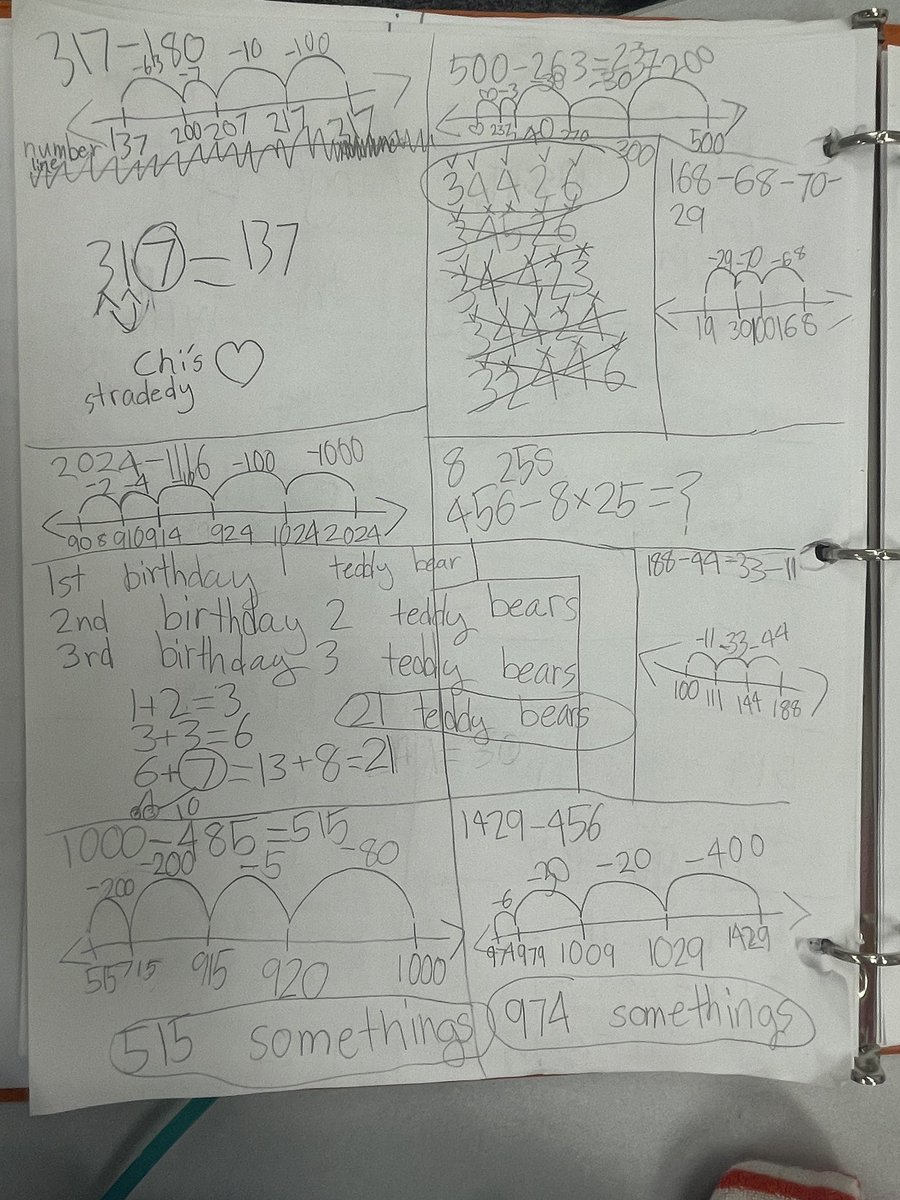 317-180
-63 -7 -10 -100
137 200 207 217 317
number
line
317=137
Chi's ♡
stradedy
500-263=237
-3 -30 -30 -200
237 240 270 300 500
34426
34526
34423
34424
32446
168-68-70-
29
-29 -70 -68
19 30 100 168
2024-1116
-2 -4 -10 -100 -1000
908 910 914 924 1024 2024
8 25s
456-8×25=?
1st birthday 1 teddy bear
2nd birthday 2 teddy bears
3rd birthday 3 teddy bears
21 teddy bears
1+2=3
3+3=6
6+7=13+8=21
10
188-44=33-11
-11 -33 -44
100 111 144 188
1000-485=515
-200 -200 -5 -80
515 715 915 920 1000
515 somethings
1429-456
-6 -30 -20 -400
974 979 1009 1029 1429
974 somethings